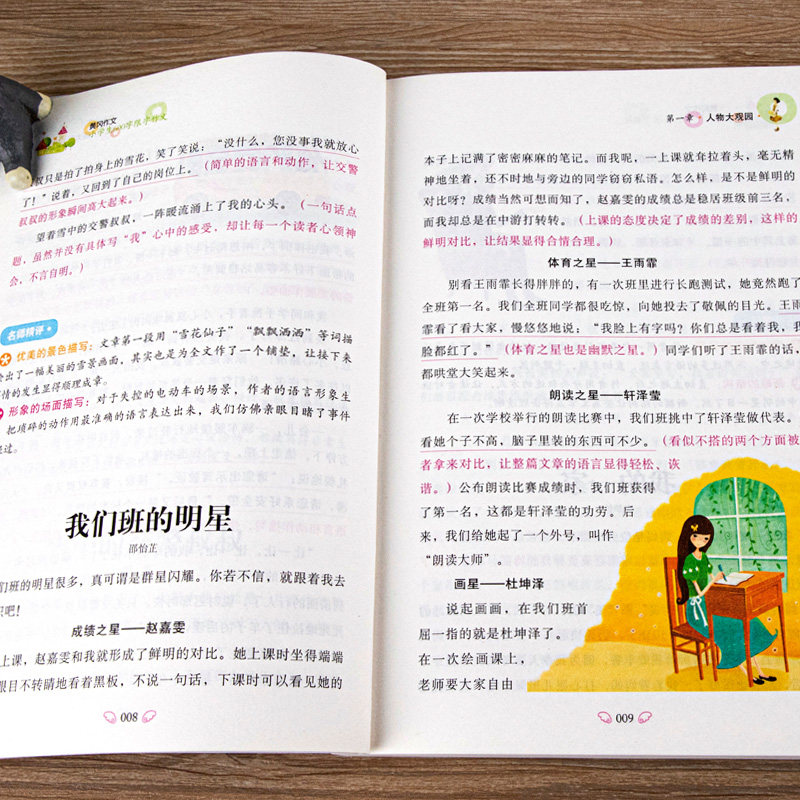 黄冈作文
小学生300字限字作文
叔只是拍了拍身上的雪花，笑了笑说：“没什么，您没事我就放心
了！”说着，又回到了自己的岗位上。（简单的语言和动作，让交警
叔叔的形象瞬间高大起来。）
望着雪中的交警叔叔，一阵暖流涌上了我的心头。（一句话点
题，虽然并没有具体写“我”心中的感受，却让每一个读者心领神
会、不言自明。）
名师精评
优美的景色描写：文章第一段用“雪花仙子”“飘飘洒洒”等词描
绘出了一幅美丽的雪景画面，其实也是为全文作了一个铺垫，让接下来
情的发生显得顺理成章。
形象的场面描写：对于失控的电动车的场景，作者的语言形象生
把琐碎的动作用最准确的语言表达出来，我们仿佛亲眼目睹了事件
过。
我们班的明星
邵怡芷
们班的明星很多，真可谓是群星闪耀。你若不信，就跟着我去
识吧！
成绩之星——赵嘉雯
上课，赵嘉雯和我就形成了鲜明的对比。她上课时坐得端端
眼目不转睛地看着黑板，不说一句话，下课时可以看见她的
008
第一章 人物大观园
本子上记满了密密麻麻的笔记。而我呢，一上课就耷拉着头，毫无精
神地坐着，还不时地与旁边的同学窃窃私语。怎么样，是不是鲜明的
对比呀？成绩当然可想而知了，赵嘉雯的成绩总是稳居班级前三名，
而我却总是在中游打转转。（上课的态度决定了成绩的差别，这样的
鲜明对比，让结果显得合情合理。）
体育之星——王雨霏
别看王雨霏长得胖胖的，有一次班里进行长跑测试，她竟然跑了
全班第一名。我们全班同学都很吃惊，向她投去了敬佩的目光。王雨
霏看了看大家，慢悠悠地说：“我脸上有字吗？你们总是看着我，我
脸都红了。”（体育之星也是幽默之星。）同学们听了王雨霏的话，
都哄堂大笑起来。
朗读之星——轩泽莹
在一次学校举行的朗读比赛中，我们班挑中了轩泽莹做代表。
看她个子不高，脑子里装的东西可不少。（看似不搭的两个方面被
者拿来对比，让整篇文章的语言显得轻松、诙
谐。）公布朗读比赛成绩时，我们班获得
了第一名，这都是轩泽莹的功劳。后
来，我们给她起了一个外号，叫作
“朗读大师”。
画星——杜坤泽
说起画画，在我们班首
屈一指的就是杜坤泽了。
在一次绘画课上，
老师要大家自由
009